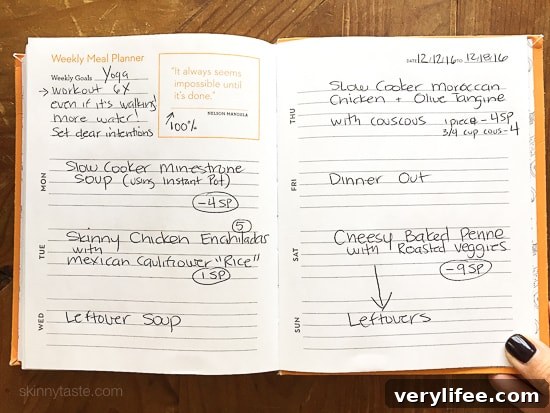 Weekly Meal Planner
Weekly Goals Yoga
→ workout 6X
even if it's walking!
more water!
Set clear intentions
"It always seems
impossible until
it's done."
NELSON MANDELA
100%
MON
Slow Cooker Minestrone
Soup (using Instant Pot)
-4SP
TUE
5
Skinny Chicken Enchiladas
with
mexican cauliflower "Rice"
1SP
WED
Leftover Soup
DATE 12/12/16 TO 12/18/16
THU
Slow Cooker moroccan
Chicken + Olive Tangine
with couscous 1 piece - 4SP
3/4 cup cous - 4
FRI
Dinner Out
SAT
Cheesy Baked Penne
with Roasted veggies
-9SP
SUN
Leftovers
skinnytaste.com
verylifee.com